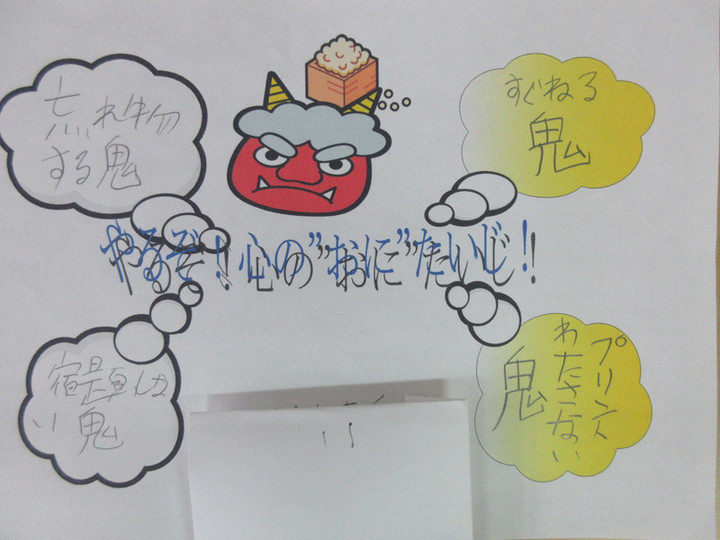 忘れ物
する鬼
すぐねる
鬼
やるぞ!心の"おに"たいじ!!
宿題しな
い鬼
プリント
わたさない
鬼